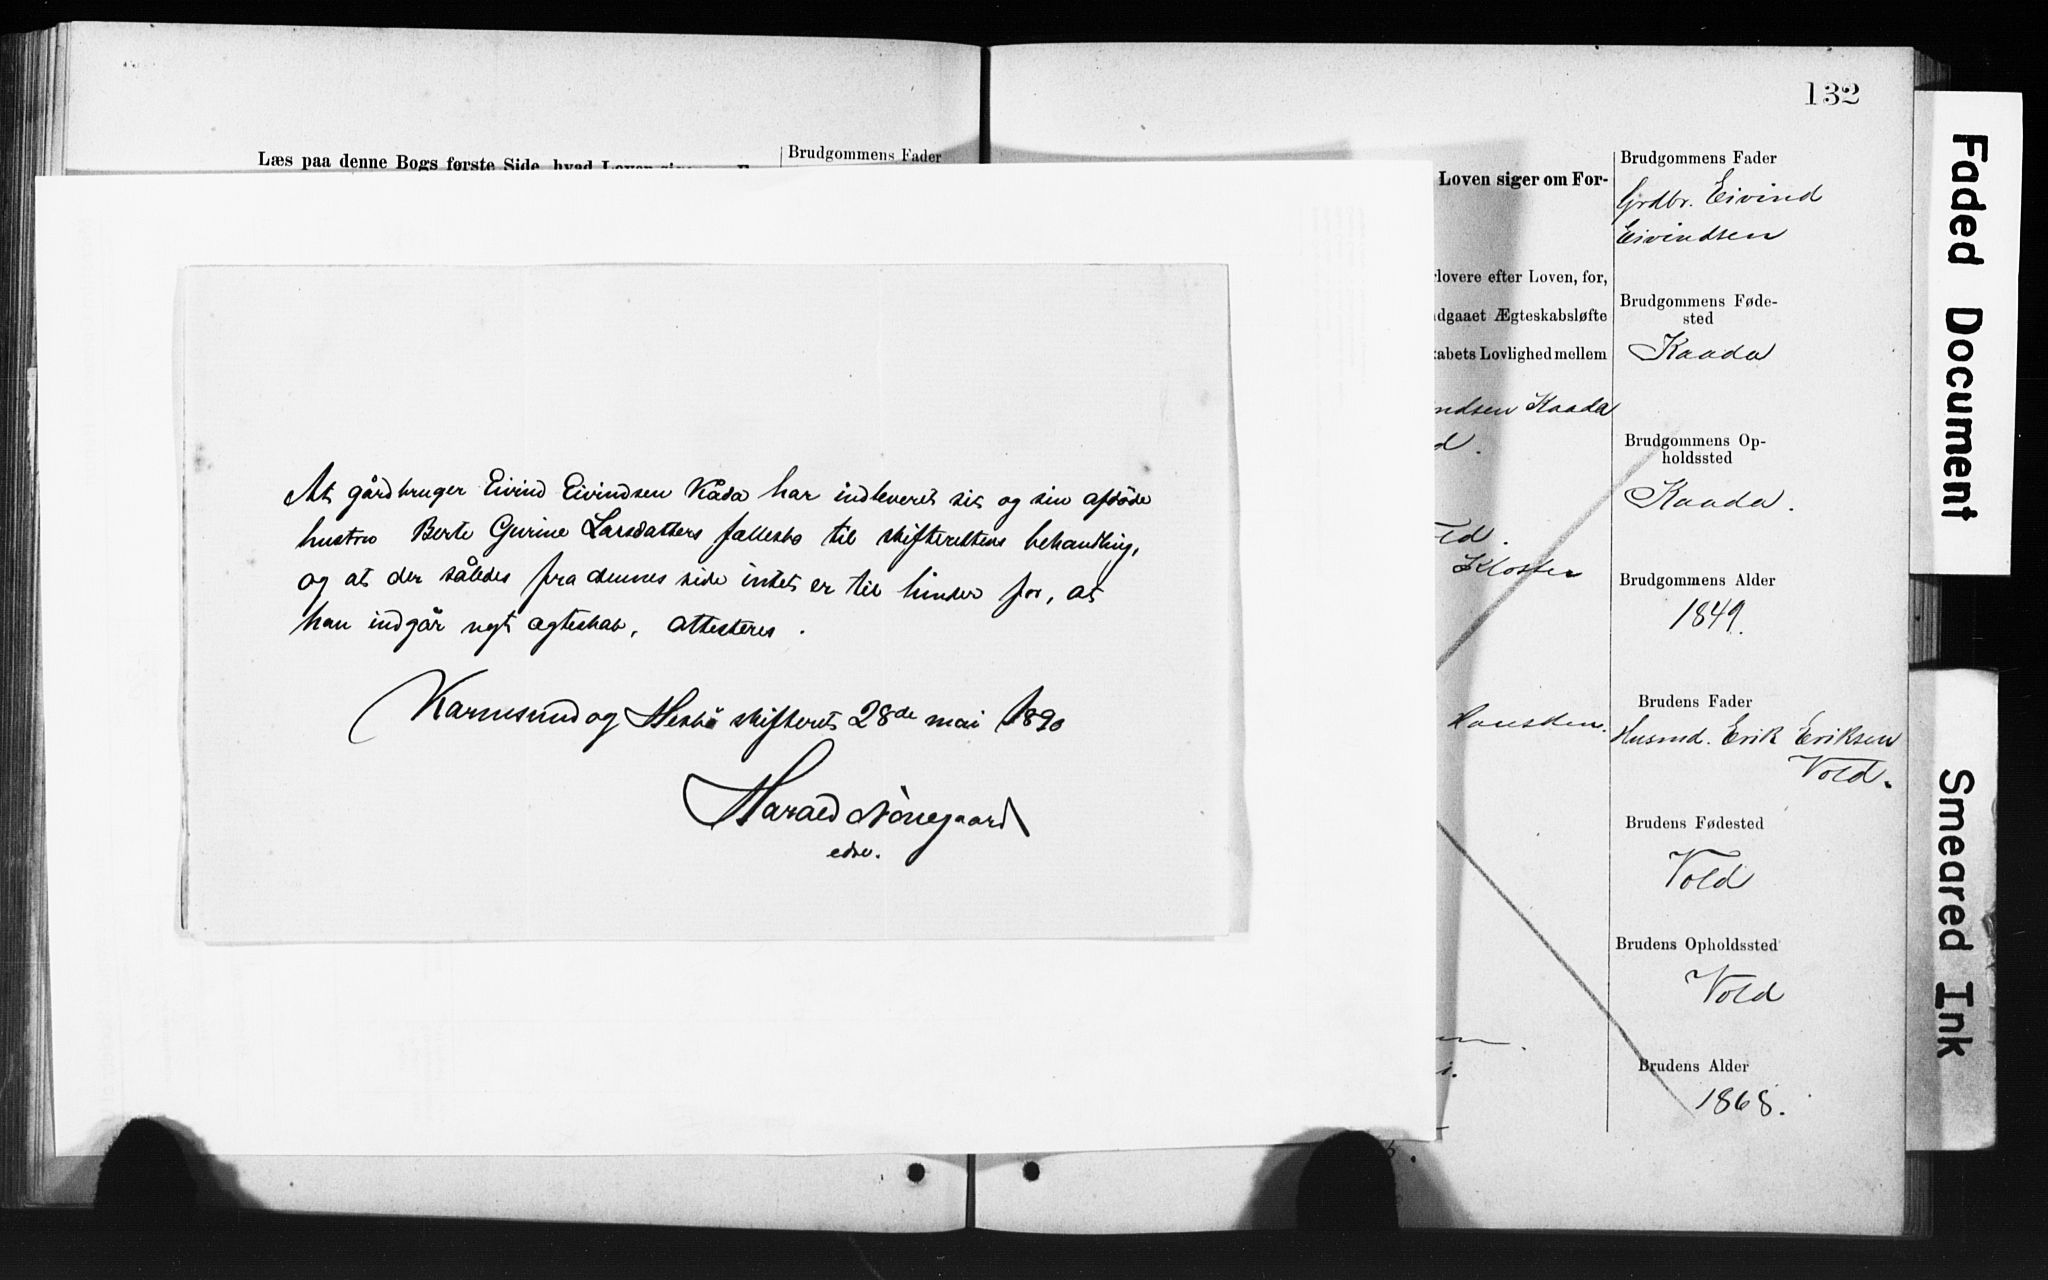 132
Læs paa denne Bogs første Side, hvad Loven siger
Brudgommens Fader
At gårdbruger Eivind Eivindsen Kåda har indleveret sit og sin afdøde
hustru Berte Gurine Larsdatters fællesbo til skifterettens behandling,
og at der således fra dennes side intet er til hinder for, at
han indgår nyt ægteskab, attesteres.
Karmsund og Hesbø skifteret 28de mai 1890
Harald Nørregaard
edsv.
Loven siger om For-
rlovere efter Loven, for,
ndgaaet Ægteskabsløfte
kabets Lovlighed mellem
ndsen Kaada
d.
ld.
Kloster
Housken.
n.
i.
Brudgommens Fader
Grdbr. Eivind
Eivindsen
Brudgommens Føde-
sted
Kaada
Brudgommens Op-
holdssted
Kaada.
Brudgommens Alder
1849.
Brudens Fader
Husmd. Erik Eriksen
Vold.
Brudens Fødested
Vold
Brudens Opholdssted
Vold
Brudens Alder
1868.
Faded Document
Smeared Ink